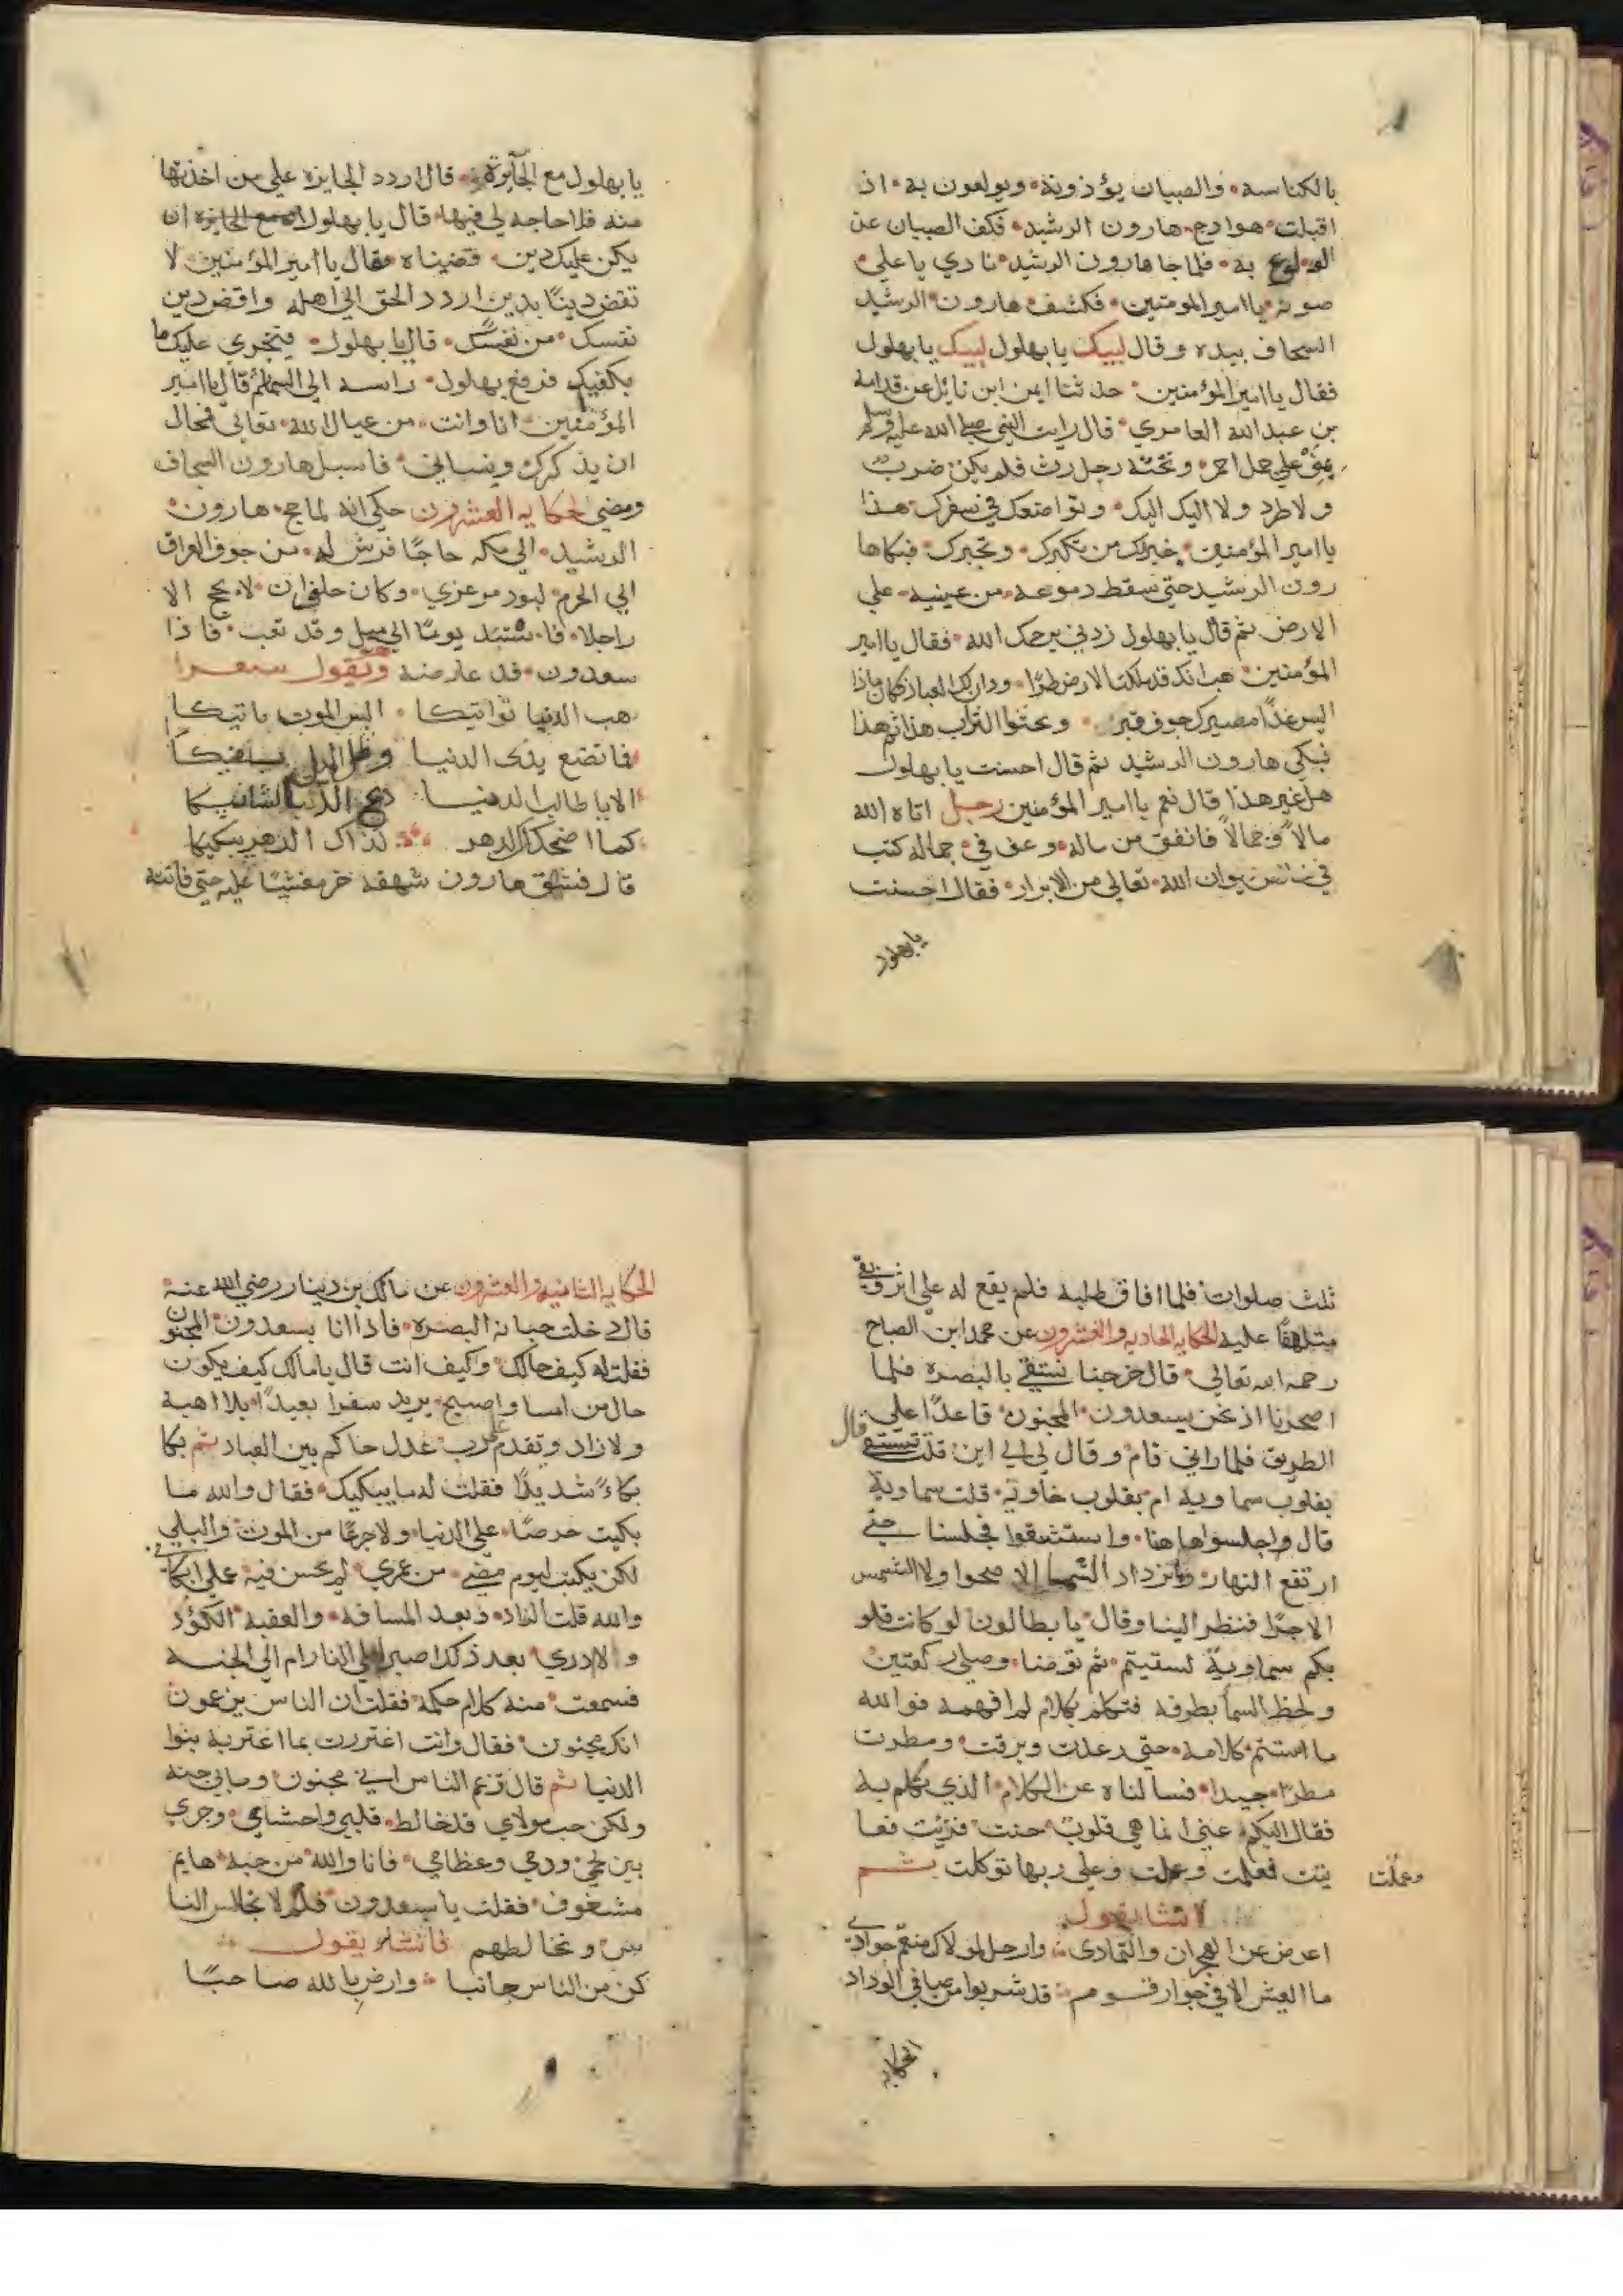 بالكناسه والصبيان يؤذونه ويولعون به اذ
اقبلت هوادج هارون الرشيد فكف الصبيان عن
الولوع به فلما جا هارون الرشيد نادي باعلي
صوته يا امير المومنين فكشف هارون الرشيد
السجاف بيده وقال لبيك يا بهلول لبيك يا بهلول
فقال يا امير المؤمنين حدثنا ايمن ابن نايل عن قدامة
بن عبد الله العامري قال رايت النبي صلي الله عليه وسلم
بمني علي جمل احمر وتحته رحل رث فلم يكن ضرب
ولا طرد ولا اليك اليك وتواضعك في سفرك هذا
يا امير المؤمنين خير لك من تكبرك وتجبرك فبكا ها
رون الرشيد حتي سقط دموعه من عينيه علي
الارض ثم قال يا بهلول زدني يرحمك الله فقال يا امير
المؤمنين هب انك قد ملكت الارض طرا ودان لك العباد فكان ماذا
اليس غدا مصيرك جوف قبر ويحثوا التراب هذا ثم هذا
فبكي هارون الرشيد ثم قال احسنت يا بهلول
هل غير هذا قال نعم يا امير المؤمنين رجل اتاه الله
مالا وجمالا فانفق من ماله وعف في جماله كتب
في خالص ديوان الله تعالي من الابرار فقال احسنت
يا بهلول
يا بهلول مع الجآيزة قال اردد الجايزه علي من اخذتها
منه فلا حاجه لي فيها قال يا بهلول مع الجايزه ان
يكن عليك دين قضيناه فقال يا امير المؤمنين لا
تقض دينا بدين اردد الحق الي اهله واقض دين
نفسك من نفسك قال يا بهلول فنجري عليك ما
يكفيك فرفع بهلول راسه الي السما ثم قال يا امير
المؤمنين انا وانت من عيال الله تعالي فمحال
ان يذكرك وينساني فاسبل هارون السجاف
ومضي الحكايه العشرون حكي انه لما حج هارون
الرشيد الي مكه حاجا فرش له من جوف العراق
الي الحرم لبود مرعزي وكان حلف ان لا يحج الا
راجلا فاستند يوما الي ميل وقد تعب فاذا
سعدون قد عارضه ويقول شعرا
هب الدنيا تواتيكا اليس الموت ياتيكا
فما تصنع بذي الدنيا وظل الميل يكفيكا
الا يا طالب الدنيا دع الدنيا لشانيكا
كما اضحكك الدهر كذاك الدهر يبكيكا
قال فشهق هارون شهقه خر مغشيا عليه حتي فاتته
ثلث صلوات فلما افاق طلبه فلم يقع له علي اثر وبقي
متلهفا عليه الحكايه الحاديه والعشرون عن محمد ابن الصباح
رحمه الله تعالي قال خرجنا نستقي بالبصره فلما
اصحرنا اذ نحن بسعدون المجنون قاعدا علي
الطريق فلما راني قام وقال لي الي اين قلت نستسقي قال
بقلوب سماوية ام بقلوب خاوية قلت سماوية
قال واجلسوا هاهنا واستشقوا فجلسنا حتي
ارتفع النهار وما تزداد السما الا صحوا ولا الشمس
الا حرا فنظر الينا وقال يا بطالون لو كانت قلو
بكم سماوية لسقيتم ثم توضا وصلي ركعتين
ولحظ السما بطرفه فتكلم بكلام لم افهمه فوالله
ما استتم كلامه حتي رعدت وبرقت ومطرت
مطرا جيدا فسالناه عن الكلام الذي تكلم به
فقال اليكم عني انما هي قلوب حنت فرنت فعا
ينت فعلمت وعملت وعلي ربها توكلت ثم
وعملت
انشا يقول
اعرض عن الهجران والتمادي وارحل لمولاك منعم جوادي
ما العيش الا في جوار قوم قد شربوا من صافي الوداد
الحكايه
الحكايه الثانيه والعشرون عن مالك بن دينار رضي الله عنه
قال دخلت جبانه البصره فاذا انا بسعدون المجنون
فقلت له كيف حالك وكيف انت قال يا مالك كيف يكون
حال من امسا واصبح يريد سفرا بعيدا بلا اهبة
ولا زاد ويقدم علي رب عدل حاكم بين العباد ثم بكا
بكاء شديدا فقلت له ما يبكيك فقال والله ما
بكيت حرصا علي الدنيا ولا جزعا من الموت والبلي
لكن بكيت ليوم مضي من عمري لم يحسن فيه عملي ابكاني
والله قلت الزاد وبعد المسافة والعقبة الكؤد
ولا ادري بعد ذلك اصير الي النار ام الي الجنه
فسمعت منه كلام حكمه فقلت ان الناس يزعمون
انك مجنون فقال وانت اغتررت بما اغتر به بنوا
الدنيا ثم قال تزعم الناس اني مجنون وما بي جنه
ولكن حب مولاي قد خالط قلبي واحشاي وجري
بين لحمي ودمي وعظامي فانا والله من حبه هايم
مشغوف فقلت يا سعدون فلم لا تجالس النا
س وتخالطهم فانشد يقول
كن من الناس جانبا وارض بالله صاحبا